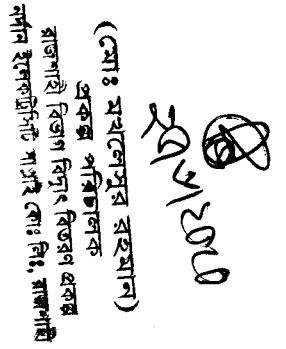 ২৭/৭/২০২০
(মোঃ মখলেসুর রহমান)
প্রকল্প পরিচালক
রাজশাহী বিভাগ বিদ্যুৎ বিতরণ প্রকল্প
নর্দান ইলেকট্রিসিটি সাপ্লাই কোঃ লিঃ, রাজশাহী